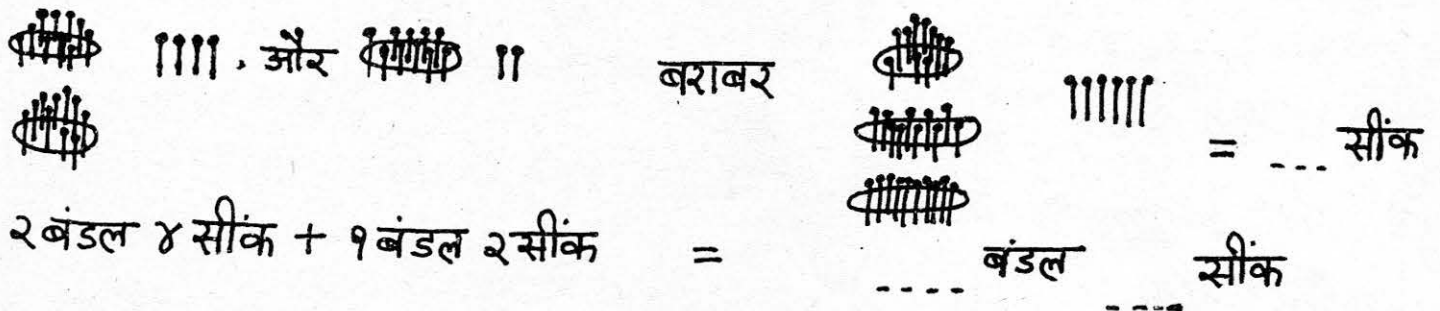 , और बराबर
= --- सींक
२ बंडल ४ सींक + १ बंडल २ सींक = ---- बंडल ---- सींक